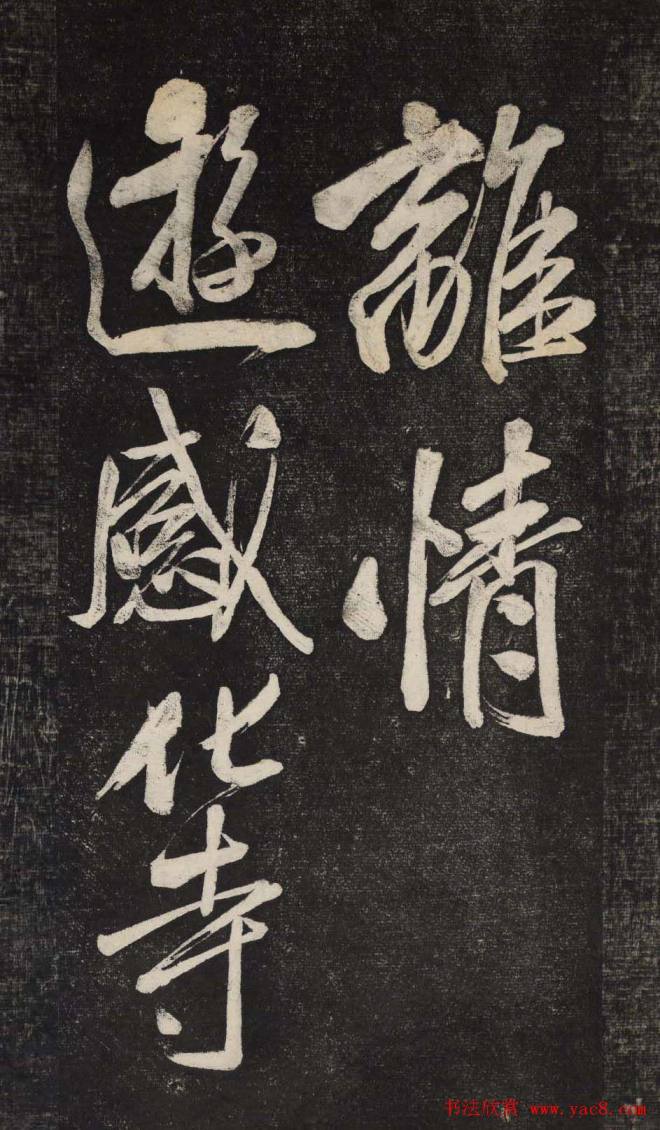 離情
遊感化寺
书法欣赏 www.yac8.com